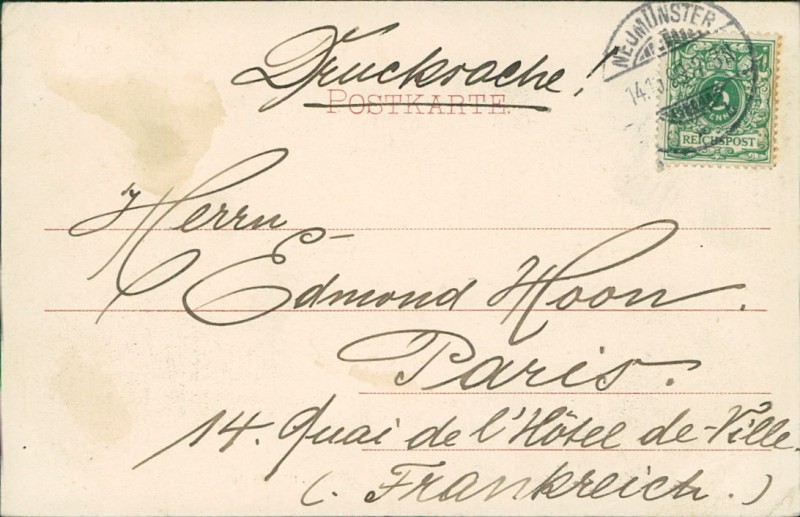 Drucksache!
POSTKARTE.
NEUMÜNSTER
5
REICHSPOST
Herrn
Edmond Hoon.
Paris.
14. Quai de l'Hôtel de-Ville.
(. Frankreich.)